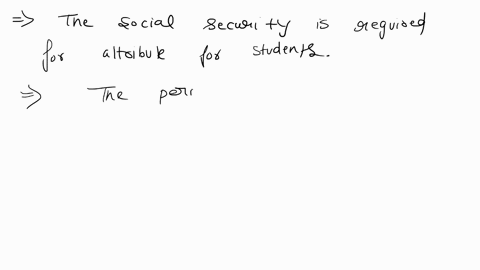 ⇒ The social security is required
for attribute for students.
⇒ The peri